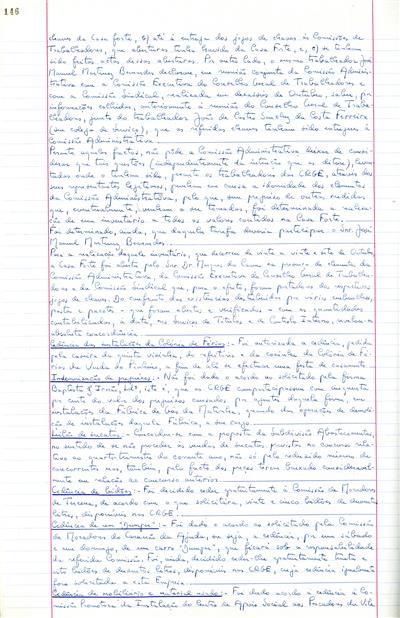 146
chaves da Casa forte, b) até à entrega dos jogos de chaves às Comissões de
Trabalhadores, que aberturas tenha havido da Casa Forte, e, c) se tenham
sido feitos actos dessas aberturas. Por outro lado, o mesmo trabalhador José
Manuel Martinez Bermudes declarou, em reunião conjunta da Comissão Adminis-
trativa com a Comissão Executiva do Conselho Geral de Trabalhadores e
com a Comissão Sindical, realizada em dezasseis de Outubro, saber, por
informações colhidas, anteriormente à reunião do Conselho Geral de Traba-
lhadores, junto do trabalhador João de Costa da Costa Ferreira
(seu colega de serviço), que as referidas chaves tinham sido entregues à
Comissão Administrativa.
Perante aqueles factos, não pôde a Comissão Administrativa deixar de consi-
derar que tais questões (independentemente da intenção que as ditou), levan-
tadas onde o tinham sido, perante os trabalhadores das CRGE, através dos
seus representantes legítimos, punham em causa a idoneidade dos elementos
da Comissão Administrativa, pelo que, sem prejuízo de outras medidas
que, eventualmente, venham a ser tomadas, foi determinada a realiza-
ção de um inventário a todos os valores contidos na Casa Forte.
Foi determinado, ainda, que daquela tarefa deveria participar o Snr. José
Manuel Martinez Bermudes.
Para a realização daquele inventário, que decorreu de vinte a vinte e sete de Outubro,
a Casa Forte foi aberta pelo Snr. Dr. Mayer do Carmo na presença de elementos da
Comissão Administrativa, da Comissão Executiva do Conselho Geral de Trabalha-
dores e da Comissão Sindical que, para o efeito, foram portadores dos respectivos
jogos de chaves. Do confronto das existências distribuídas por vários embrulhos,
pastas e pacotes - que foram abertos e verificados - com as quantidades
contabilizadas, à data, nos Serviços de Títulos e de Contrôlo Interno, revelou-se
absoluta concordância.
Cedência das instalações da Colónia de Férias: - Foi autorizada a cedência, pedida
pela caseira da quinta vizinha, do refeitório e da cozinha da Colónia de Fé-
rias da Venda do Pinheiro, a fim de ali se efectuar uma festa de casamento.
Indemnização de prejuízos: - Não foi dado o acordo ao solicitado pela firma
Baptista & Irmão, Ldª., isto é, que as CRGE comparticipassem com um quanto
por conta do valor dos prejuízos causados, por aquela firma, em
instalações da Fábrica de Gás da Matinha, quando das operações de demoli-
ção de instalações daquela Fábrica, a seu cargo.
Leilão de sucatas: - Concordou-se com a proposta da Subdivisão Abastecimentos,
no sentido de se não proceder às vendas de sucatas, previstas no concurso rela-
tivo ao quarto trimestre do corrente ano, não só pelo reduzido número de
concorrentes mas, também, pelo facto dos preços terem baixado consideravel-
mente em relação ao concurso anterior.
Cedência de bidões: - Foi decidido ceder gratuitamente à Comissão de Moradores
de Tercena, de acordo com o que solicitara, vinte e cinco bidões de duzentos
litros, disponíveis nas CRGE.
Cedência de um "Jumper": - Foi dado o acordo ao solicitado pela Comissão
de Moradores do Casal da Ajuda, ou seja, a cedência, por um sábado
e um domingo, de um carro "Jumper", que ficará sob a responsabilidade
da referida Comissão. Foi, ainda, decidido ceder-lhe gratuitamente, trinta e
oito bidões de duzentos litros, disponíveis nas CRGE, cuja cedência igualmente
fora solicitada a esta Empresa.
Cedência de mobiliário e material usado: - Foi dado acordo à cedência à Co-
missão Promotora da Instalação do Centro de Apoio Social aos Pescadores da Vila